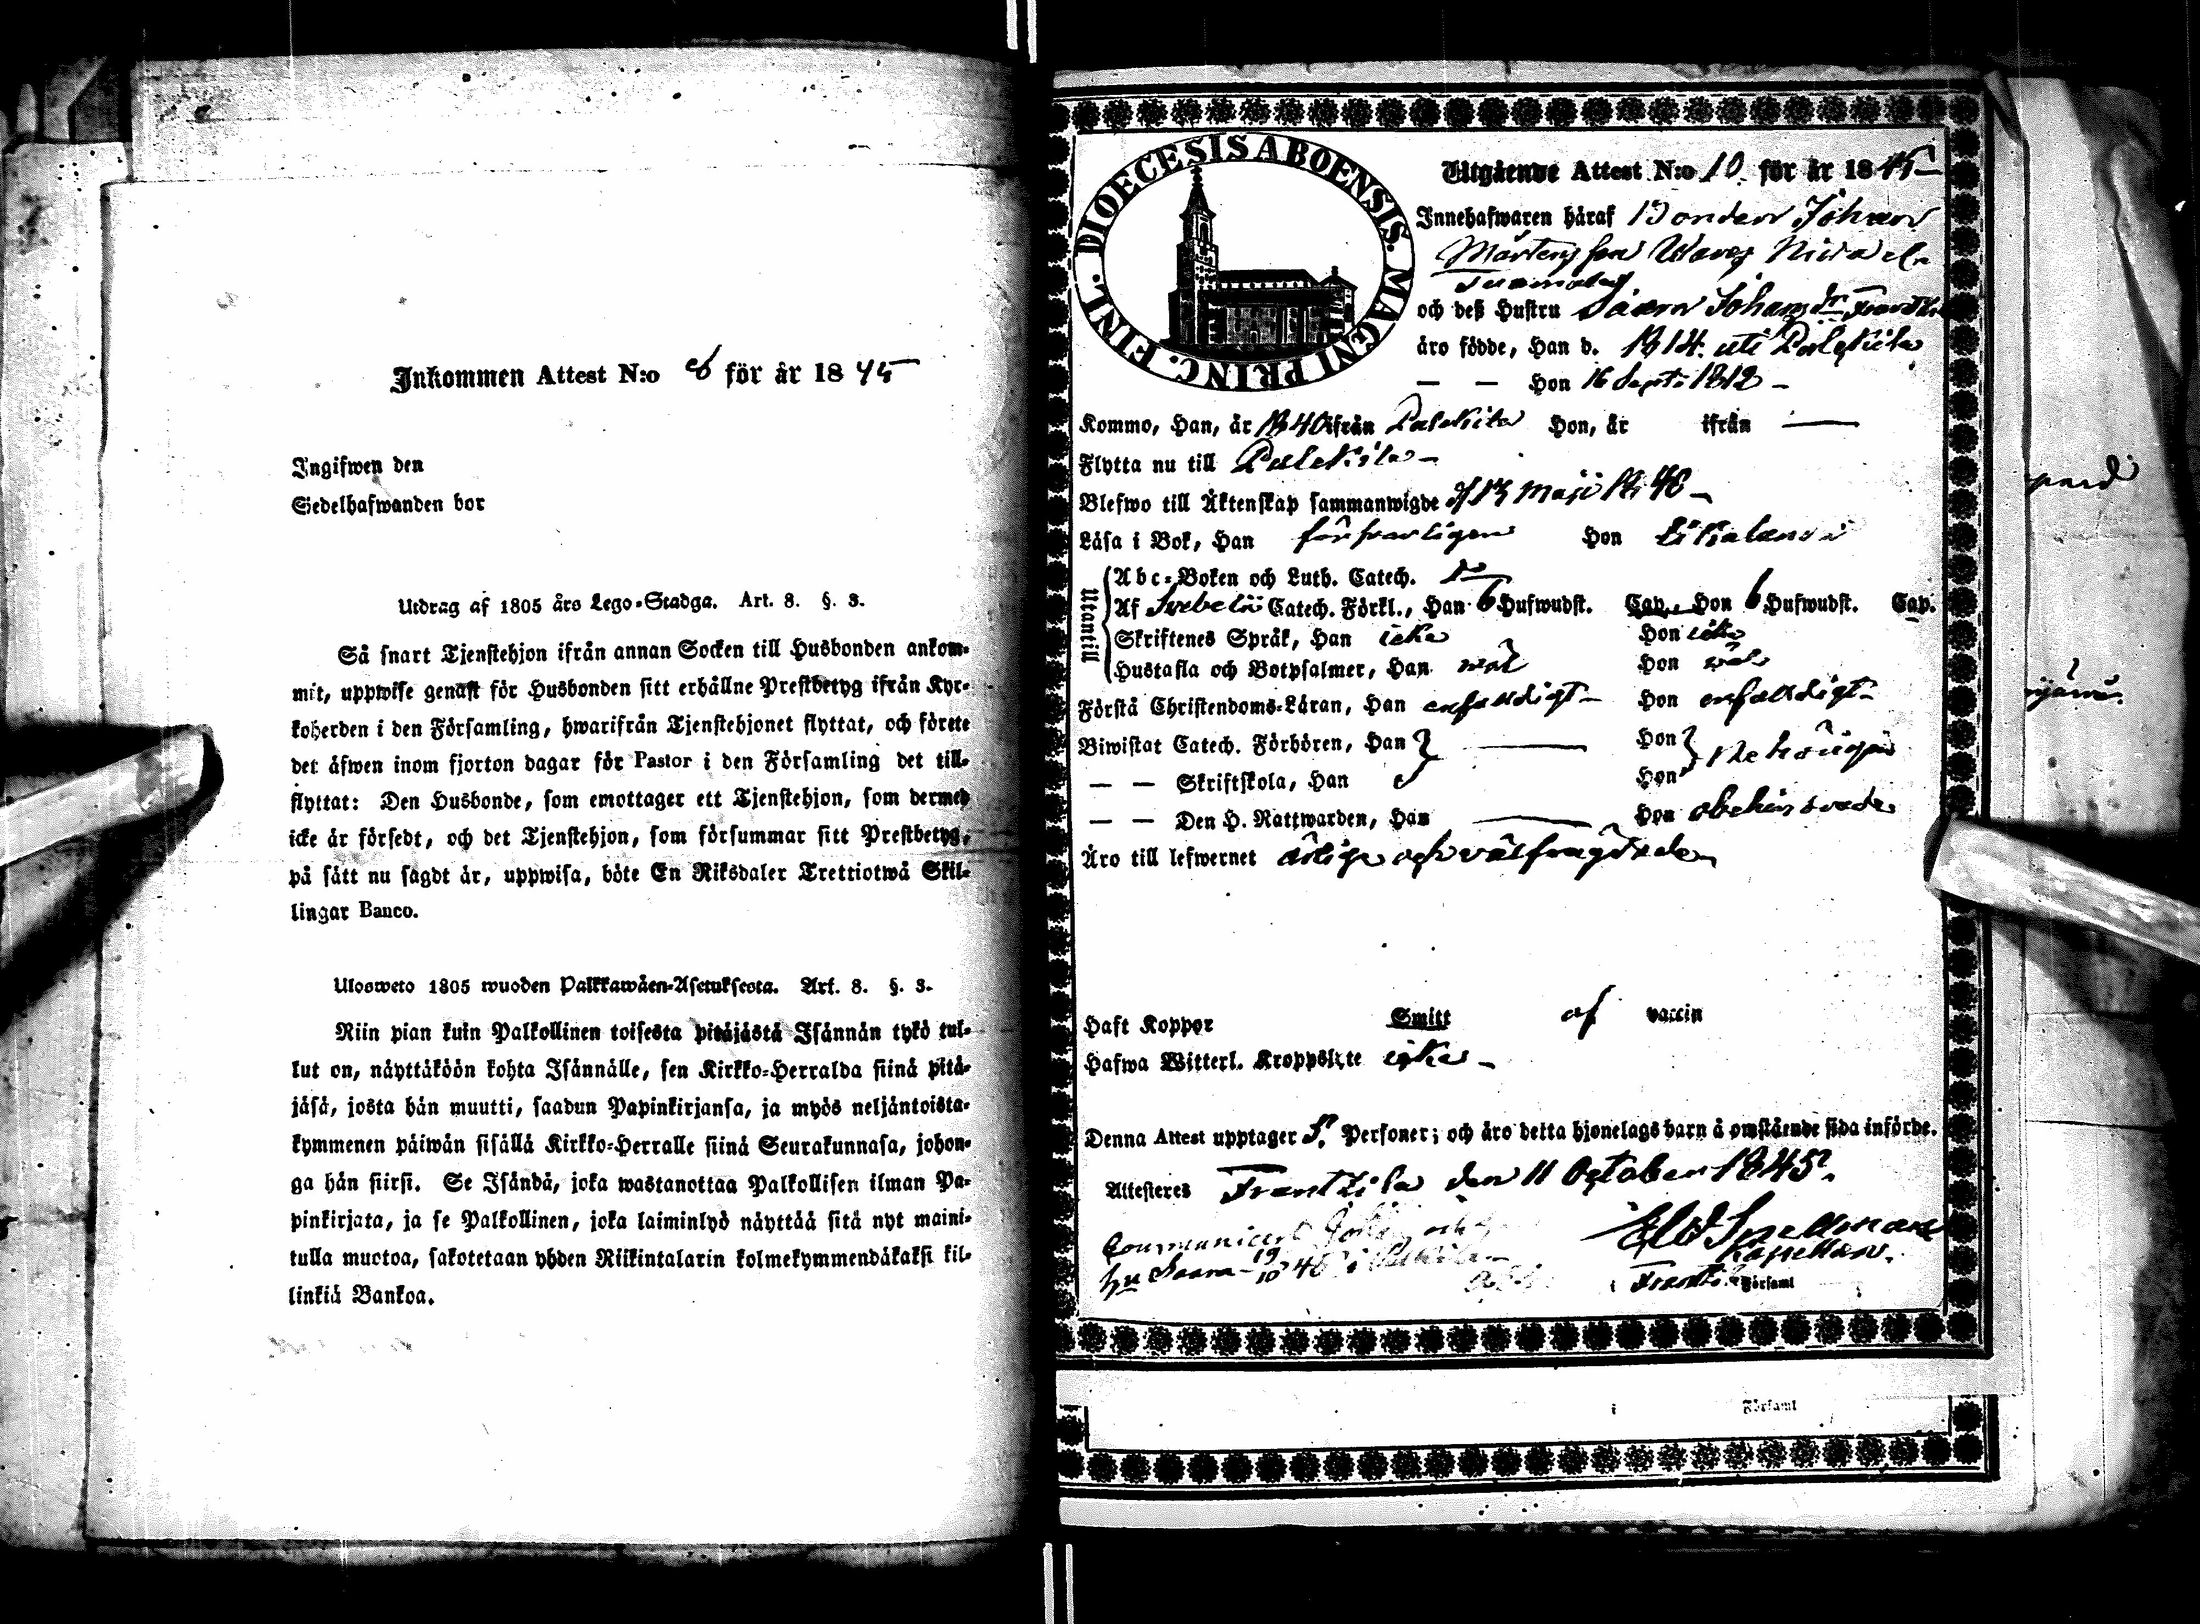 Inkommen Attest N:o 6 för år 1845
Ingifwen den
Sedelhafwanden bor
Utdrag af 1805 års Lego-Stadga. Art. 8. §. 3.
Så snart Tjenstehjon ifrån annan Socken till Husbonden ankom-
mit, uppwise genast för Husbonden sitt erhållne Prestbetyg ifrån Kyr-
koherden i den Församling, hwarifrån Tjenstehjonet flyttat, och förete
det äfwen inom fjorton dagar för Pastor i den Församling det till-
flyttat: Den Husbonde, som emottager ett Tjenstehjon, som dermed
icke är försedt, och det Tjenstehjon, som försummar sitt Prestbetyg,
på sätt nu sagdt är, uppwisa, böte En Riksdaler Trettiotwå Skil-
lingar Banco.
Ulosweto 1805 wuoden Palkkawäen-Asetuksesta. Art. 8. §. 3.
Niin pian kuin Palkollinen toisesta pitäjästä Isännän tykö tul-
lut on, näyttäköön kohta Isännälle, sen Kirkko-Herralda siinä pitä-
jäsä, josta hän muutti, saadun Papinkirjansa, ja myös neljäntoista-
kymmenen päiwän sisällä Kirkko-Herralle siinä Seurakunnasa, johon-
ga hän siirsi. Se Isändä, joka wastanottaa Palkollisen ilman Pa-
pinkirjata, ja se Palkollinen, joka laiminlyö näyttää sitä nyt maini-
tulla muotoa, sakotetaan yhden Riikintalarin kolmekymmendäkaksi kil-
linkiä Bankoa.
DIOECESIS ABOENSIS. MAGNI PRINC. FINL.
Utgående Attest N:o 10 för år 1845
Innehafwaren häraf Bonden Johan
Mårtensson
och deß Hustru Saara Johansdr
äro födde, Han d. 1814 uti Palekila
— — Hon 16 Sept. 1812 -
Kommo, Han, år 1840 ifrån Palekila Hon, år ifrån —
Flytta nu till Palekila -
Blefwo till Äktenskap sammanwigde d 13 Maji 1840 -
Läsa i Bok, Han försvarligen Hon likaledes
Utantill
Abc-Boken och Luth. Catech. do
Af Svebelii Catech. Förkl., Han 6 Hufwudst. Cap. Hon 6 Hufwudst. Cap.
Skriftenes Språk, Han icke Hon icke
Hustafla och Botpsalmer, Han wäl Hon wäl
Förstå Christendoms-Läran, Han enfaldigt - Hon enfaldigt -
Biwistat Catech. Förhören, Han — Hon
— — Skriftskola, Han Hon behörigen
— — Den H. Nattwarden, Han — Hon obehindrade
Äro till lefwernet ärlige och välfrägdade
Haft Koppor Smitt af vaccin
Hafwa Witterl. Kroppslyte icke -
Denna Attest upptager 5 Personer; och äro detta hjonelags barn å omstående sida införde.
Attesteres Frantzila den 11 October 1845.
Snellman
Kapellan.
i Frantzila Församl
i Församl